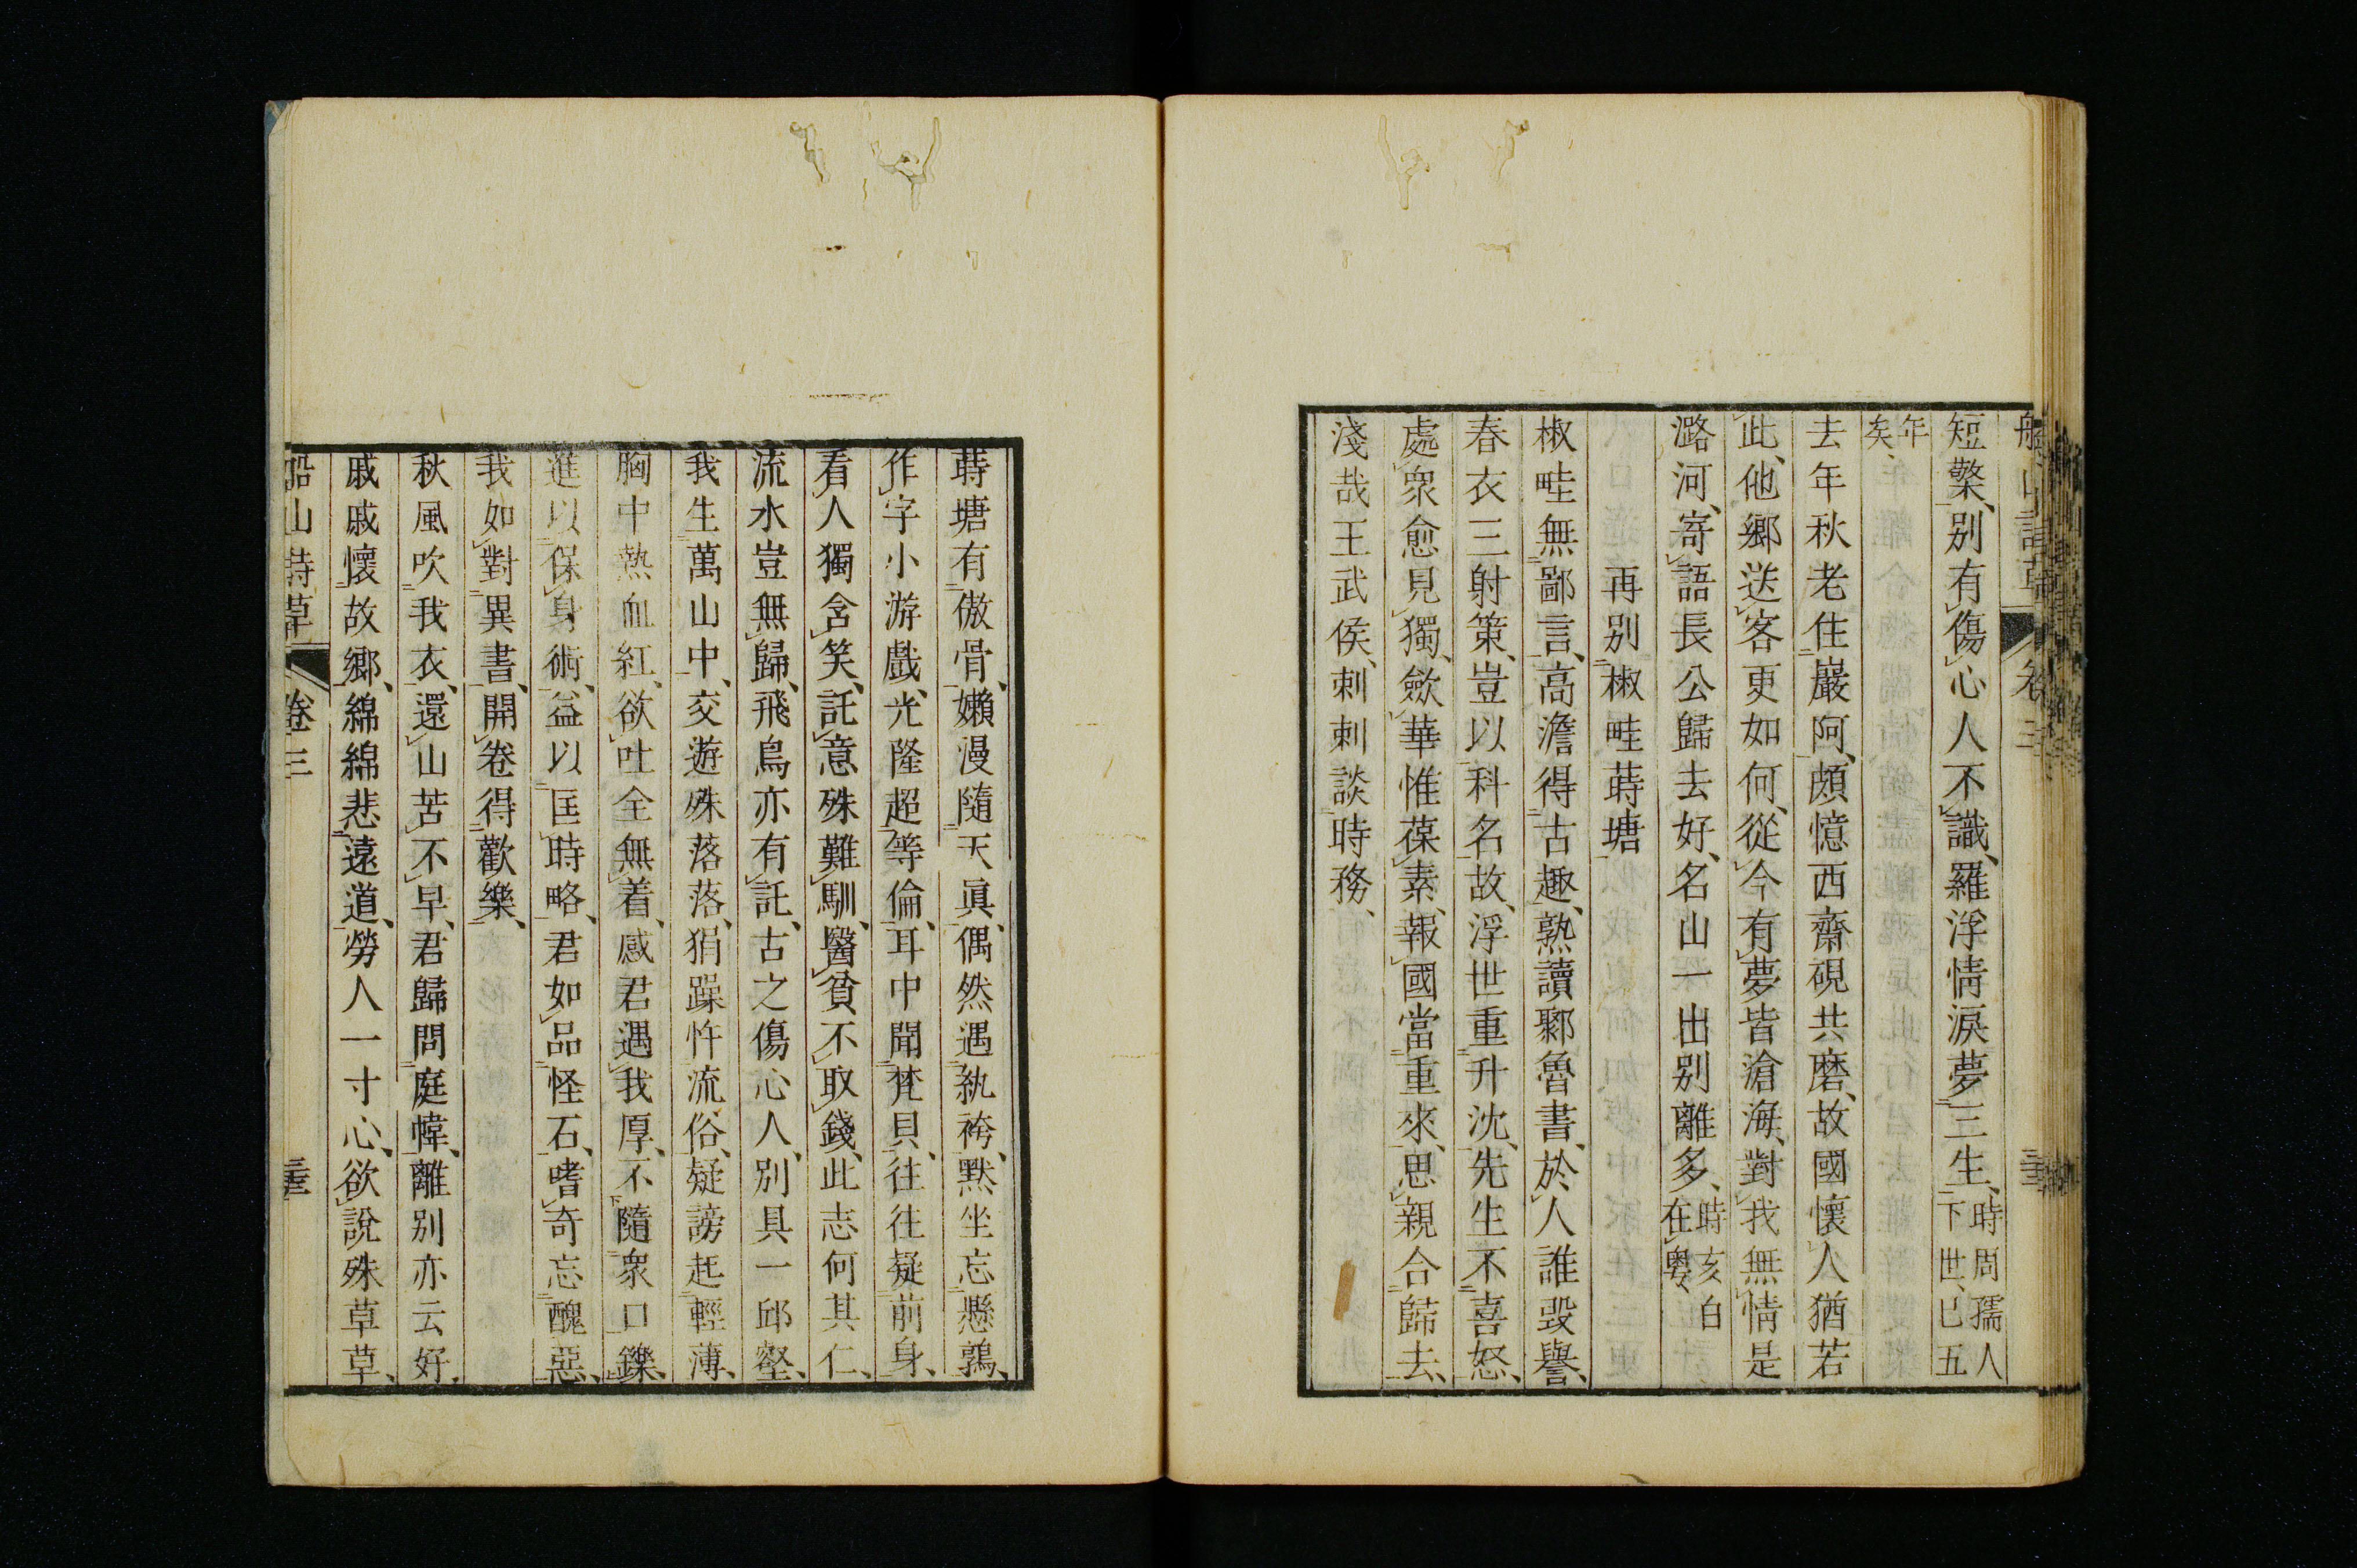 船山詩草 卷三
短檠、別有傷心人不識、羅浮情淚夢三生、時周孺人下世、已五
年矣、
去年秋老住巖阿、頗憶西齋硯共磨、故國懷人猶若
此、他鄉送客更如何、從今有夢皆滄海、對我無情是
潞河、寄語長公歸去好、名山一出別離多、時亥白在粵、
再別椒畦蒔塘
椒畦無鄙言、高澹得古趣、熟讀鄹魯書、於人誰毀譽、
春衣三射策、豈以科名故、浮世重升沈、先生不喜怒、
處衆愈見獨、斂華惟葆素、報國當重來、思親合歸去、
淺哉王武侯、刺刺談時務、
蒔塘有傲骨、嬾漫隨天眞、偶然遇紈袴、默坐忘懸鶉、
作字小游戲、光隆超等倫、耳中聞梵貝、往往疑前身、
看人獨含笑、託意殊難馴、醫貧不取錢、此志何其仁、
流水豈無歸、飛鳥亦有託、古之傷心人、別具一邱壑、
我生萬山中、交遊殊落落、狷躁忤流俗、疑謗起輕薄、
胸中熱血紅、欲吐全無着、感君遇我厚、不隨衆口鑠、
進以保身術、益以匡時略、君如品怪石、嗜奇忘醜惡、
我如對異書、開卷得歡樂、
秋風吹我衣、還山苦不早、君歸問庭幃、離別亦云好、
戚戚懷故鄉、綿綿悲遠道、勞人一寸心、欲說殊草草、
船山詩草 卷三